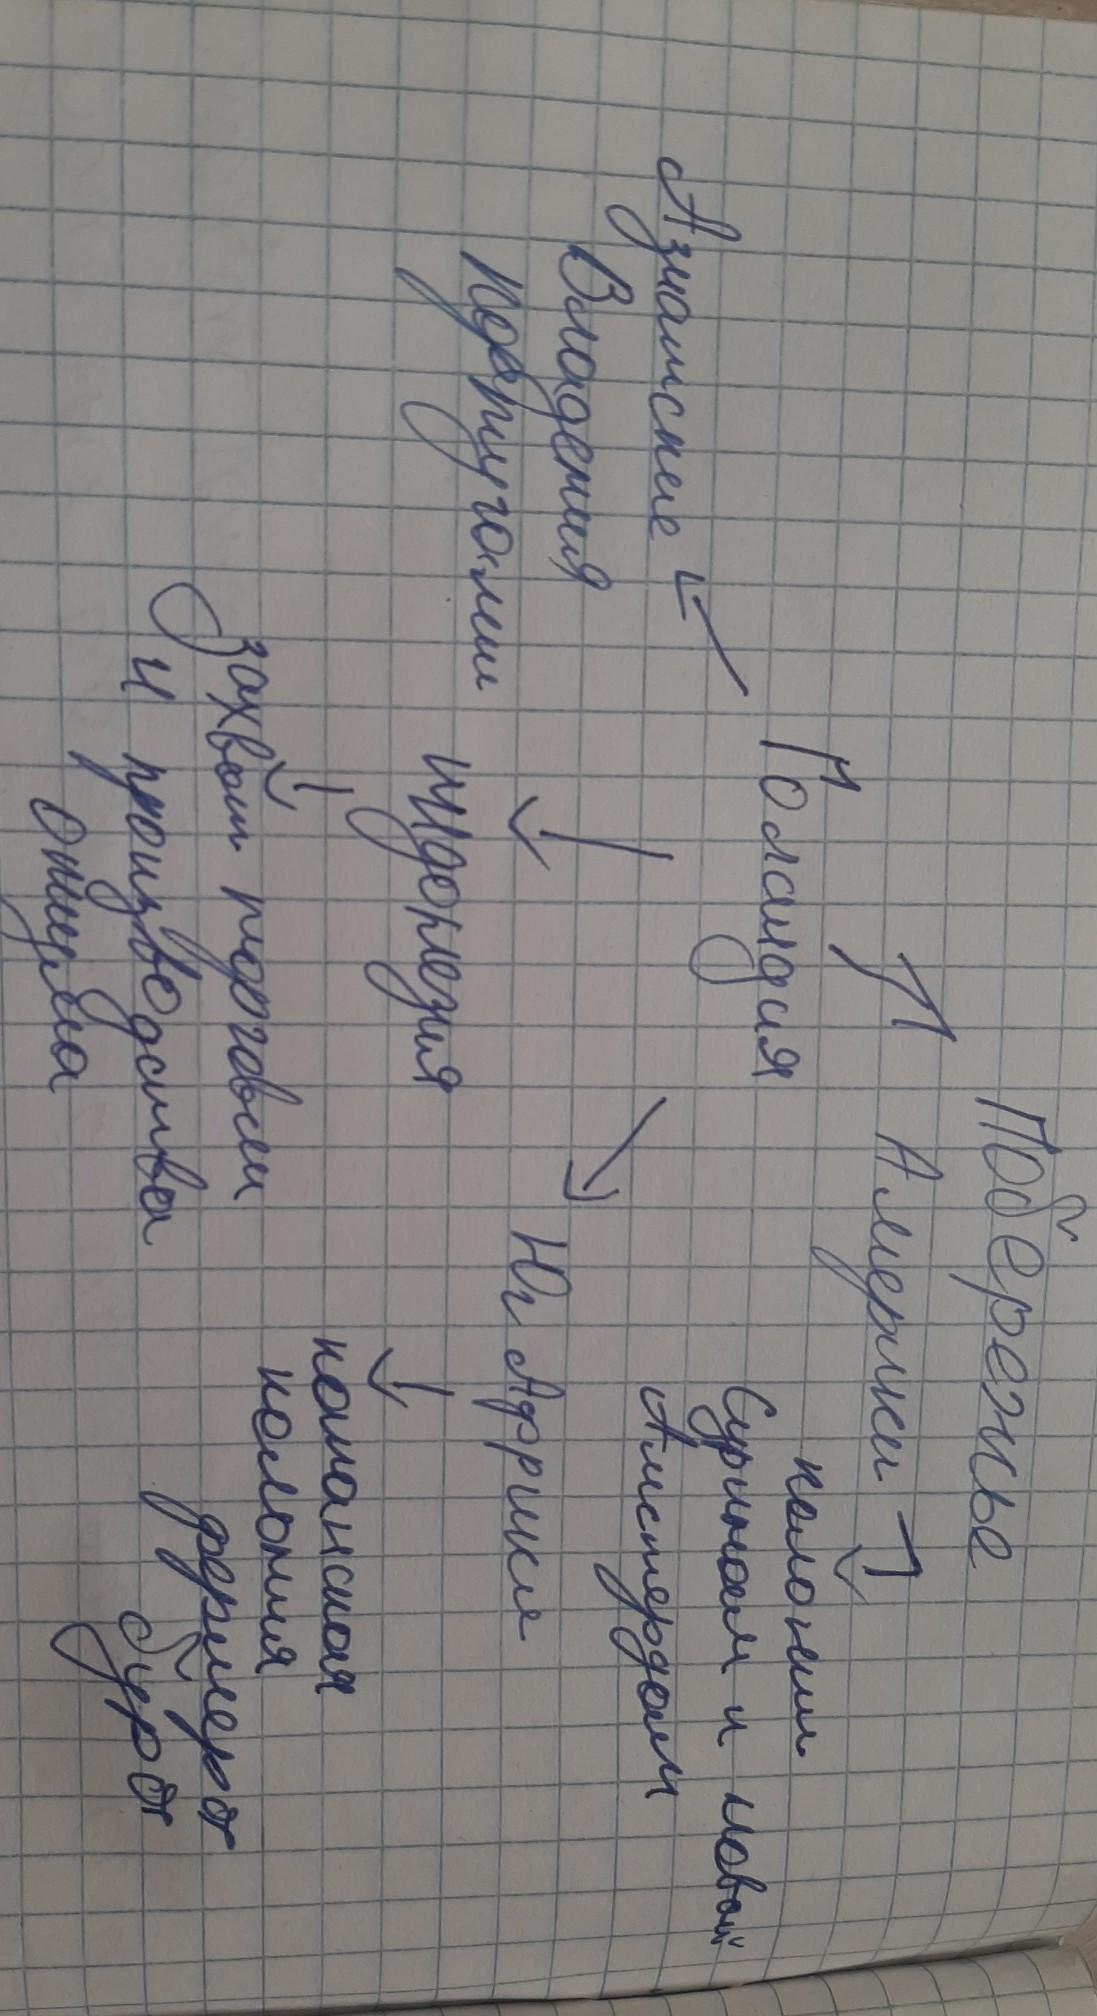 Побережье
Америки
колонии
Суринам и новый
Амстердам
Голандия
Азиатские
Владения
Португалии
индонезия
захват торговли
и производства
опиума
Юг Африки
капанская
колония
фермеров
буров